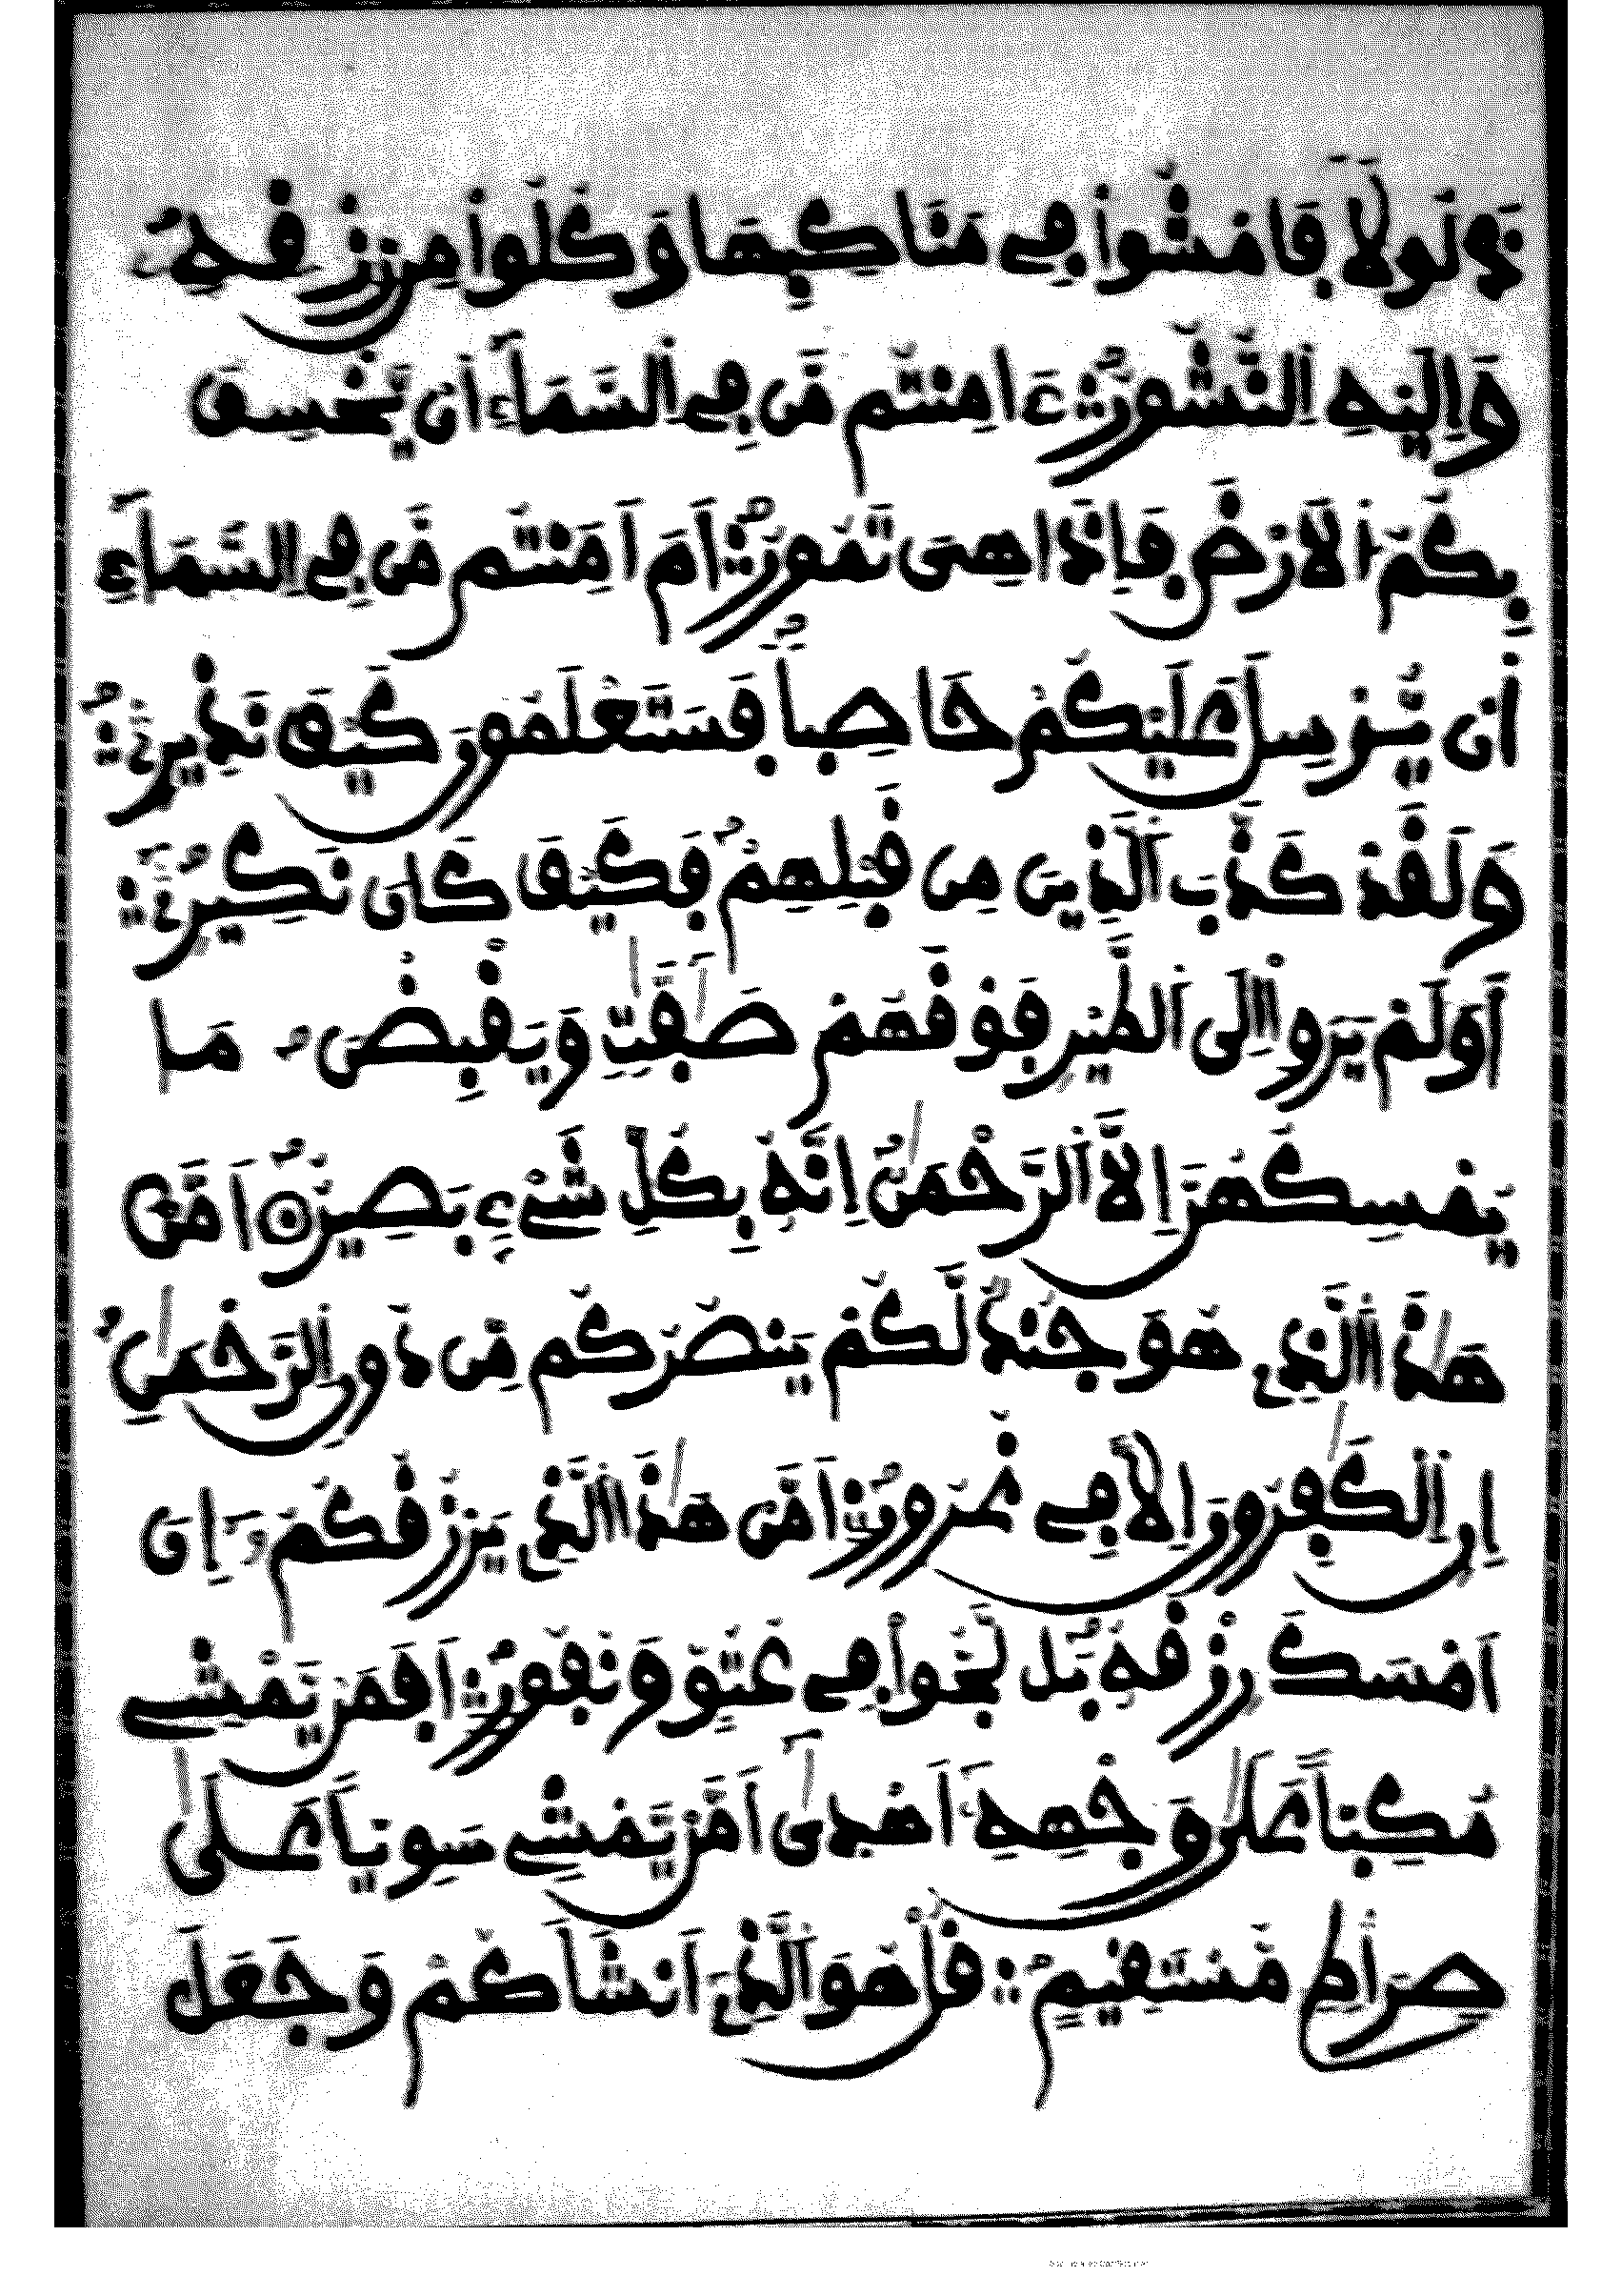 ذَلُولًا فَامْشُوا فِي مَنَاكِبِهَا وَكُلُوا مِن رِّزْقِهِ
وَإِلَيْهِ النُّشُورُ ءَامِنتُم مَّن فِي السَّمَاءِ أَن يَخْسِفَ
بِكُمُ الْأَرْضَ فَإِذَا هِيَ تَمُورُ أَمْ أَمِنتُم مَّن فِي السَّمَاءِ
أَن يُرْسِلَ عَلَيْكُمْ حَاصِبًا فَسَتَعْلَمُونَ كَيْفَ نَذِيرِ
وَلَقَدْ كَذَّبَ الَّذِينَ مِن قَبْلِهِمْ فَكَيْفَ كَانَ نَكِيرِ
أَوَلَمْ يَرَوْا إِلَى الطَّيْرِ فَوْقَهُمْ صَافَّاتٍ وَيَقْبِضْنَ مَا
يُمْسِكُهُنَّ إِلَّا الرَّحْمَنُ إِنَّهُ بِكُلِّ شَيْءٍ بَصِيرٌ أَمَّنْ
هَذَا الَّذِي هُوَ جُندٌ لَّكُمْ يَنصُرُكُم مِّن دُونِ الرَّحْمَنِ
إِنِ الْكَافِرُونَ إِلَّا فِي غُرُورٍ أَمَّنْ هَذَا الَّذِي يَرْزُقُكُمْ إِنْ
أَمْسَكَ رِزْقَهُ بَل لَّجُّوا فِي عُتُوٍّ وَنُفُورٍ أَفَمَن يَمْشِي
مُكِبًّا عَلَى وَجْهِهِ أَهْدَى أَمَّن يَمْشِي سَوِيًّا عَلَى
صِرَاطٍ مُّسْتَقِيمٍ قُلْ هُوَ الَّذِي أَنشَأَكُمْ وَجَعَلَ